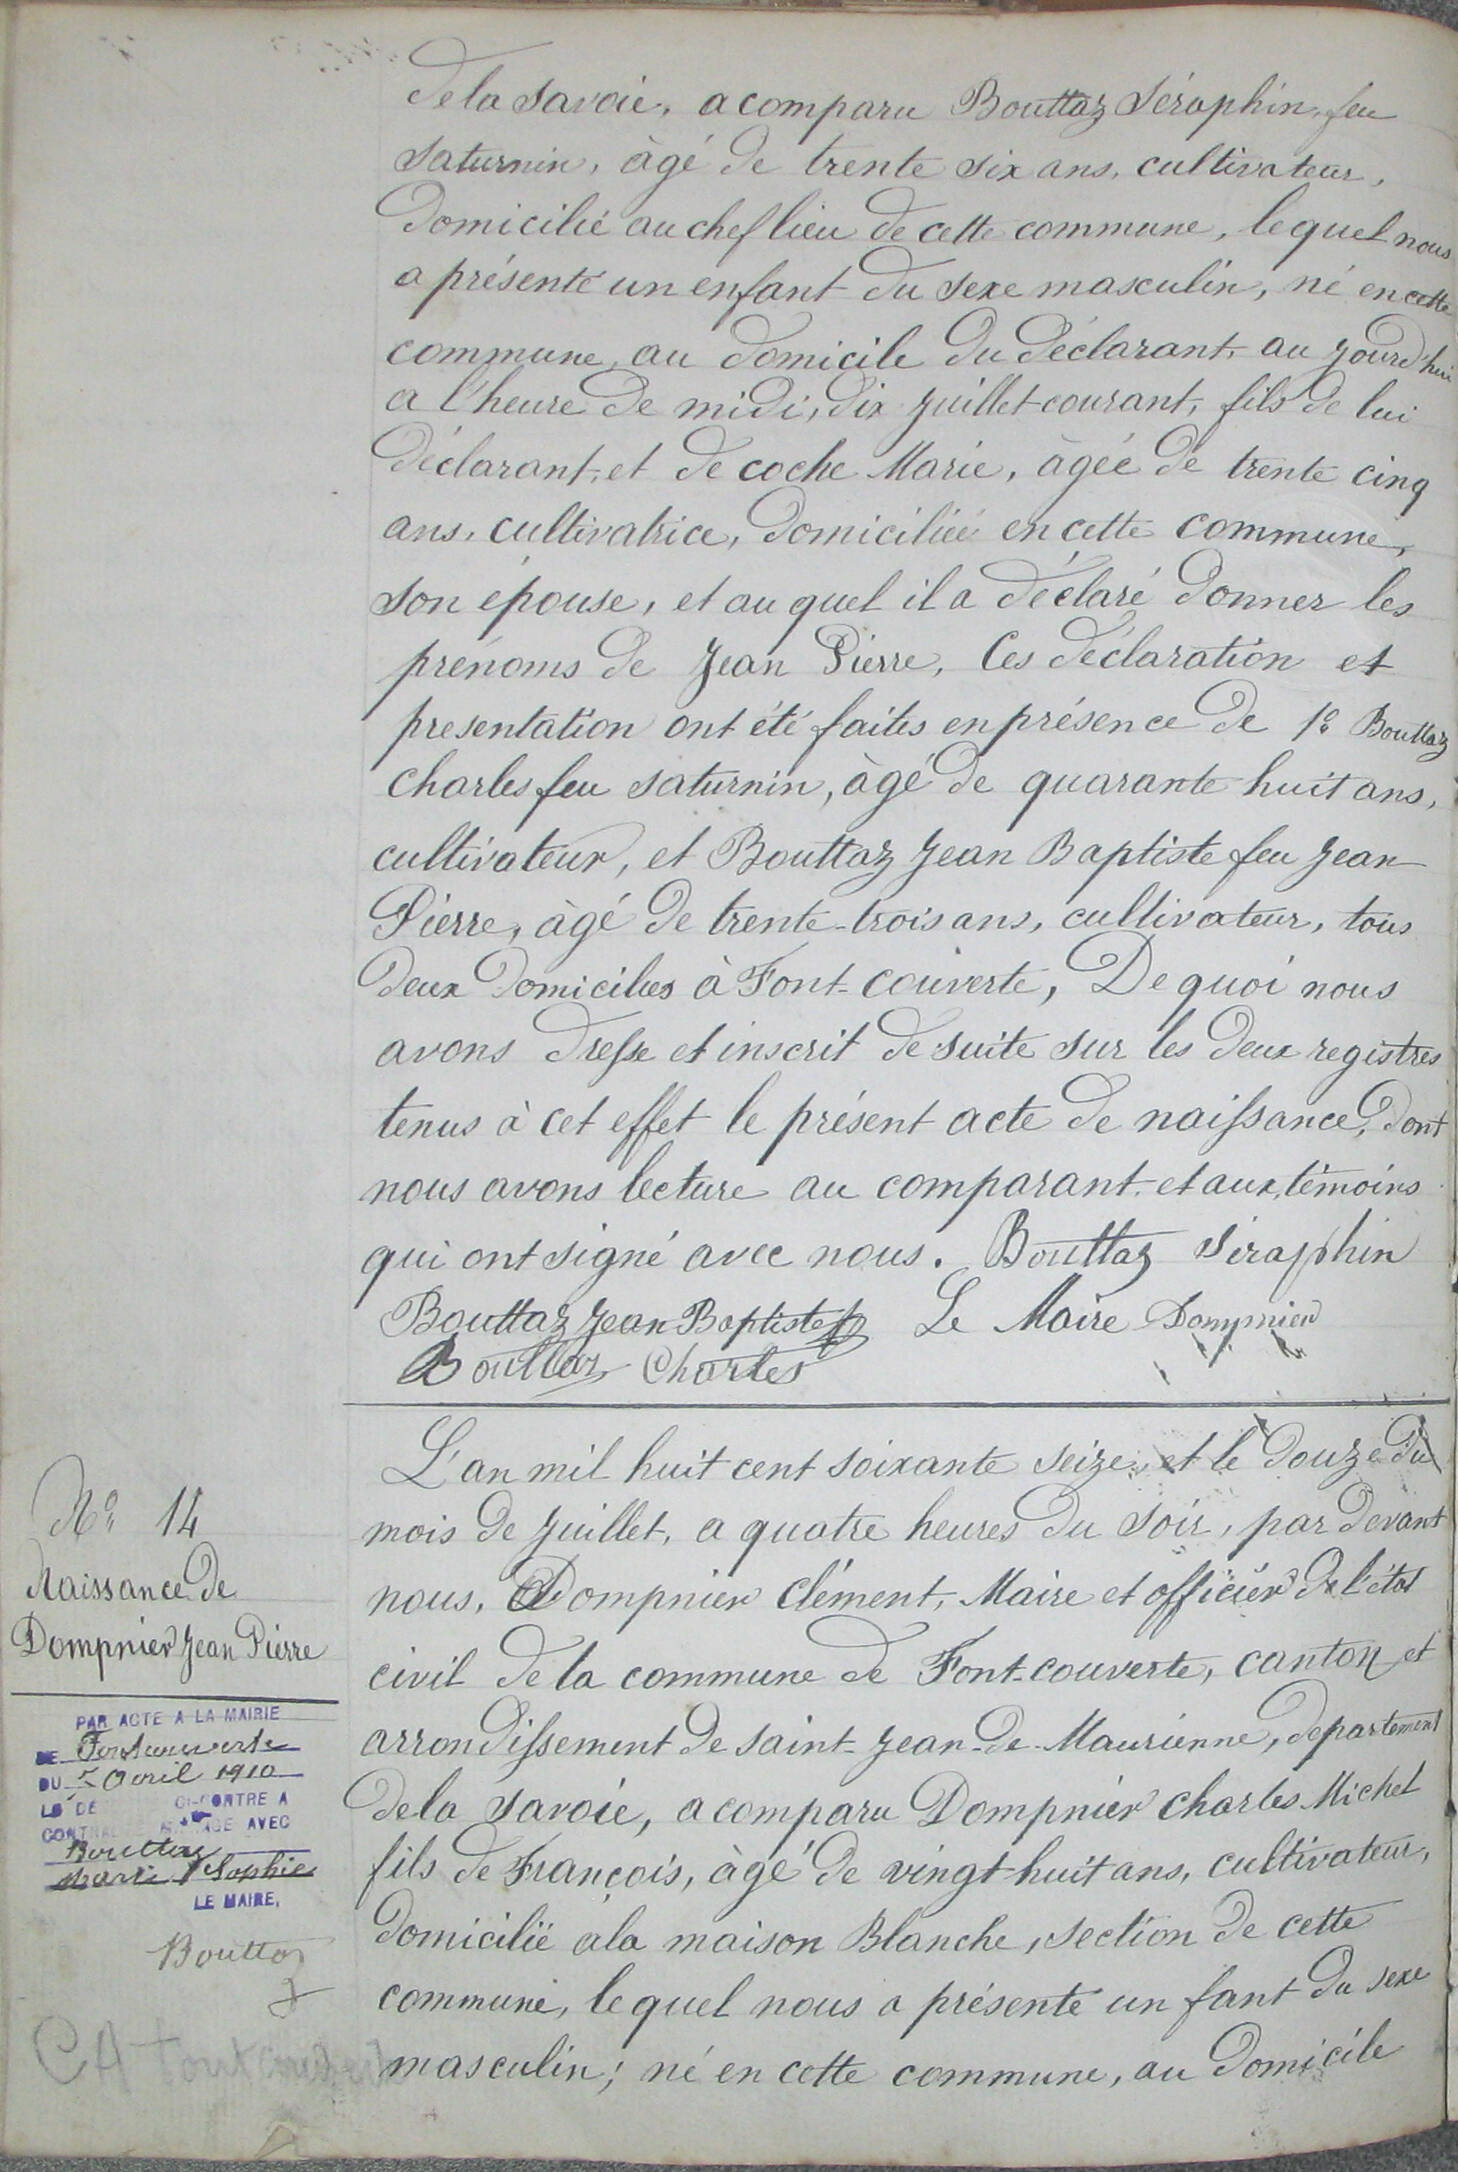 de la Savoie, a comparu Bouttaz Séraphin, feu
Saturnin, âgé de trente six ans, cultivateur,
domicilié au chef lieu de cette commune, lequel nous
a présenté un enfant du sexe masculin, né en cette
commune, au domicile du déclarant, au jourd'hui
a l'heure de midi, dix juillet courant, fils de lui
déclarant, et de coche Marie, âgée de trente cinq
ans, cultivatrice, domiciliée en cette commune,
son épouse, et au quel il a déclaré donner les
prénoms de Jean Pierre, Ces déclaration et
presentation ont été faites en présence de 1º Bouttaz
Charles feu Saturnin, âgé de quarante huit ans,
cultivateur, et Bouttaz Jean Baptiste feu Jean
Pierre, âgé de trente-trois ans, cultivateur, tous
deux domiciliés à Font-couverte, De quoi nous
avons dressé et inscrit de suite sur les deux registres
tenus à cet effet le présent acte de naissance, dont
nous avons lecture au comparant et aux témoins
qui ont signé avec nous. Bouttaz Séraphin
Bouttaz Jean Baptiste Le Maire Dompnier
Bouttaz Charles
Nº 14
Naissance de
Dompnier Jean Pierre
PAR ACTE A LA MAIRIE
DE Fontcouverte
DU 5 Avril 1910
CI-CONTRE A
AVEC
Bouttaz
Marie Sophie
LE MAIRE,
Bouttaz
L'an mil huit cent soixante seize et le douze du
mois de juillet, a quatre heures du soir, par devant
nous, Dompnier Clément, Maire et officier de l'état
civil de la commune de Font-couverte, canton et
arrondissement de Saint-Jean-de-Maurienne, departement
de la Savoie, a comparu Dompnier Charles Michel
fils de François, âgé de vingt-huit ans, cultivateur,
domicilié a la maison Blanche, section de cette
commune, lequel nous a présenté un fant du sexe
masculin; né en cette commune, au domicile